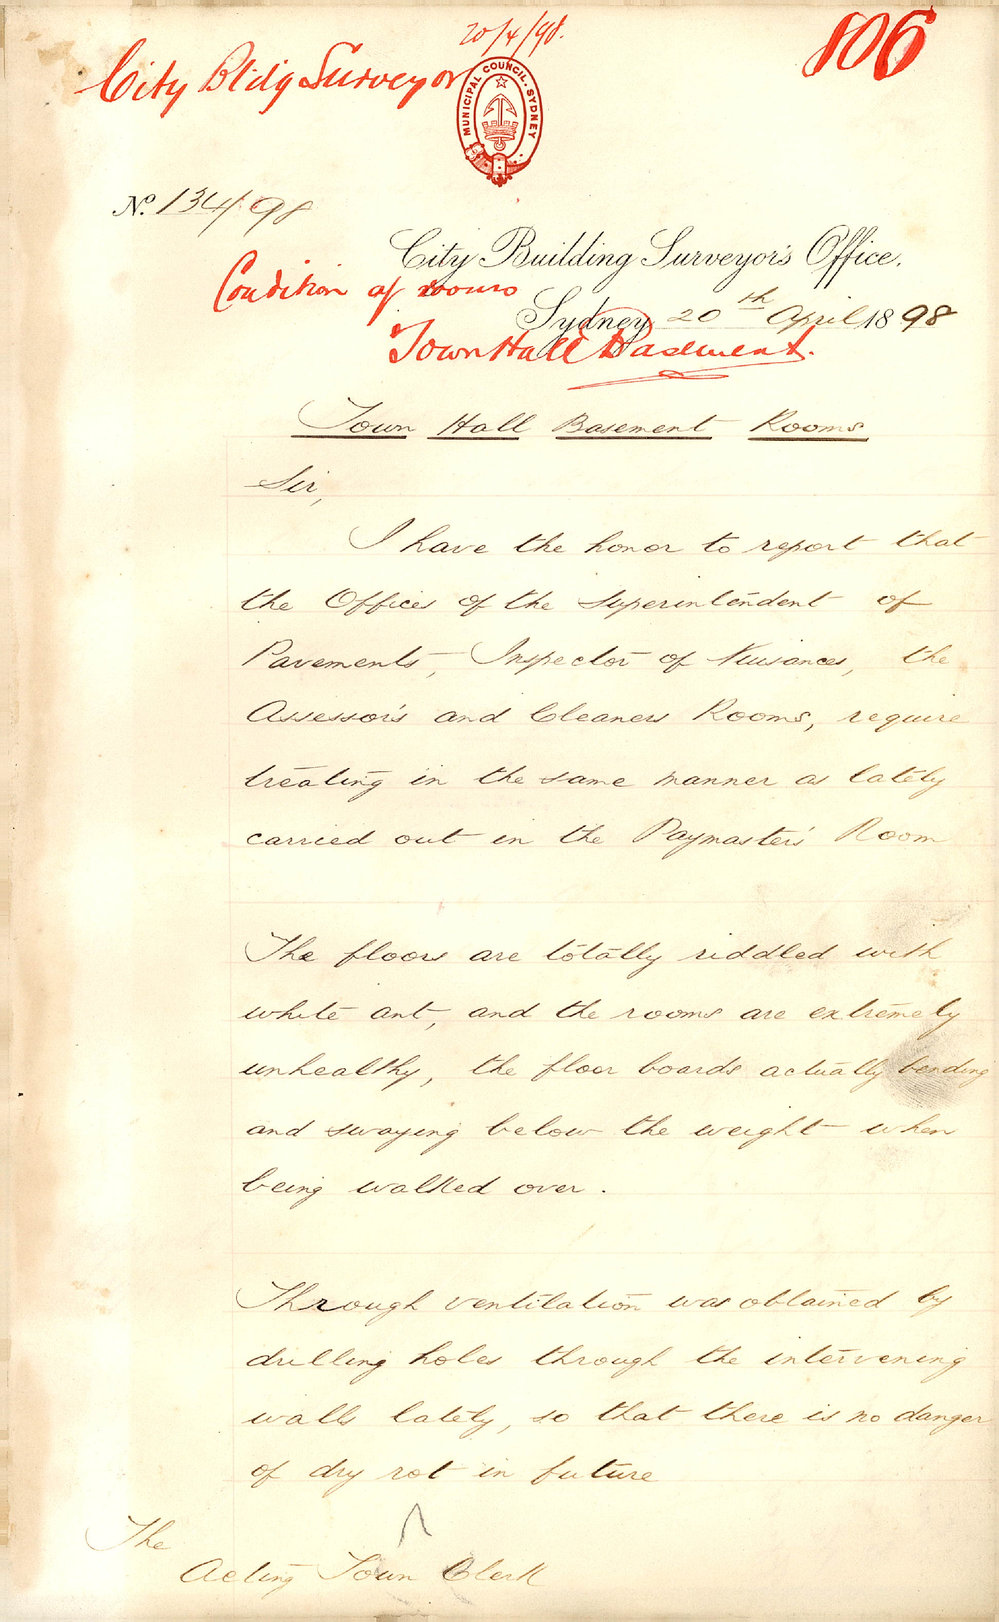 20/4/98.
806
City Bldg Surveyor
MUNICIPAL COUNCIL. SYDNEY
No. 134/98
City Building Surveyor's Office.
Condition of rooms
Sydney 20th April 1898
Town Hall Basement.
Town Hall Basement Rooms
Sir,
I have the honor to report that
the Offices of the Superintendent of
Pavements, Inspector of Nuisances, the
Assessor's and Cleaners Rooms, require
treating in the same manner as lately
carried out in the Paymaster's Room
The floors are totally riddled with
white ant, and the rooms are extremely
unhealthy, the floor boards actually bending
and swaying below the weight when
being walked over.
Through ventilation was obtained by
drilling holes through the intervening
walls lately, so that there is no danger
of dry rot in future
The
Acting Town Clerk